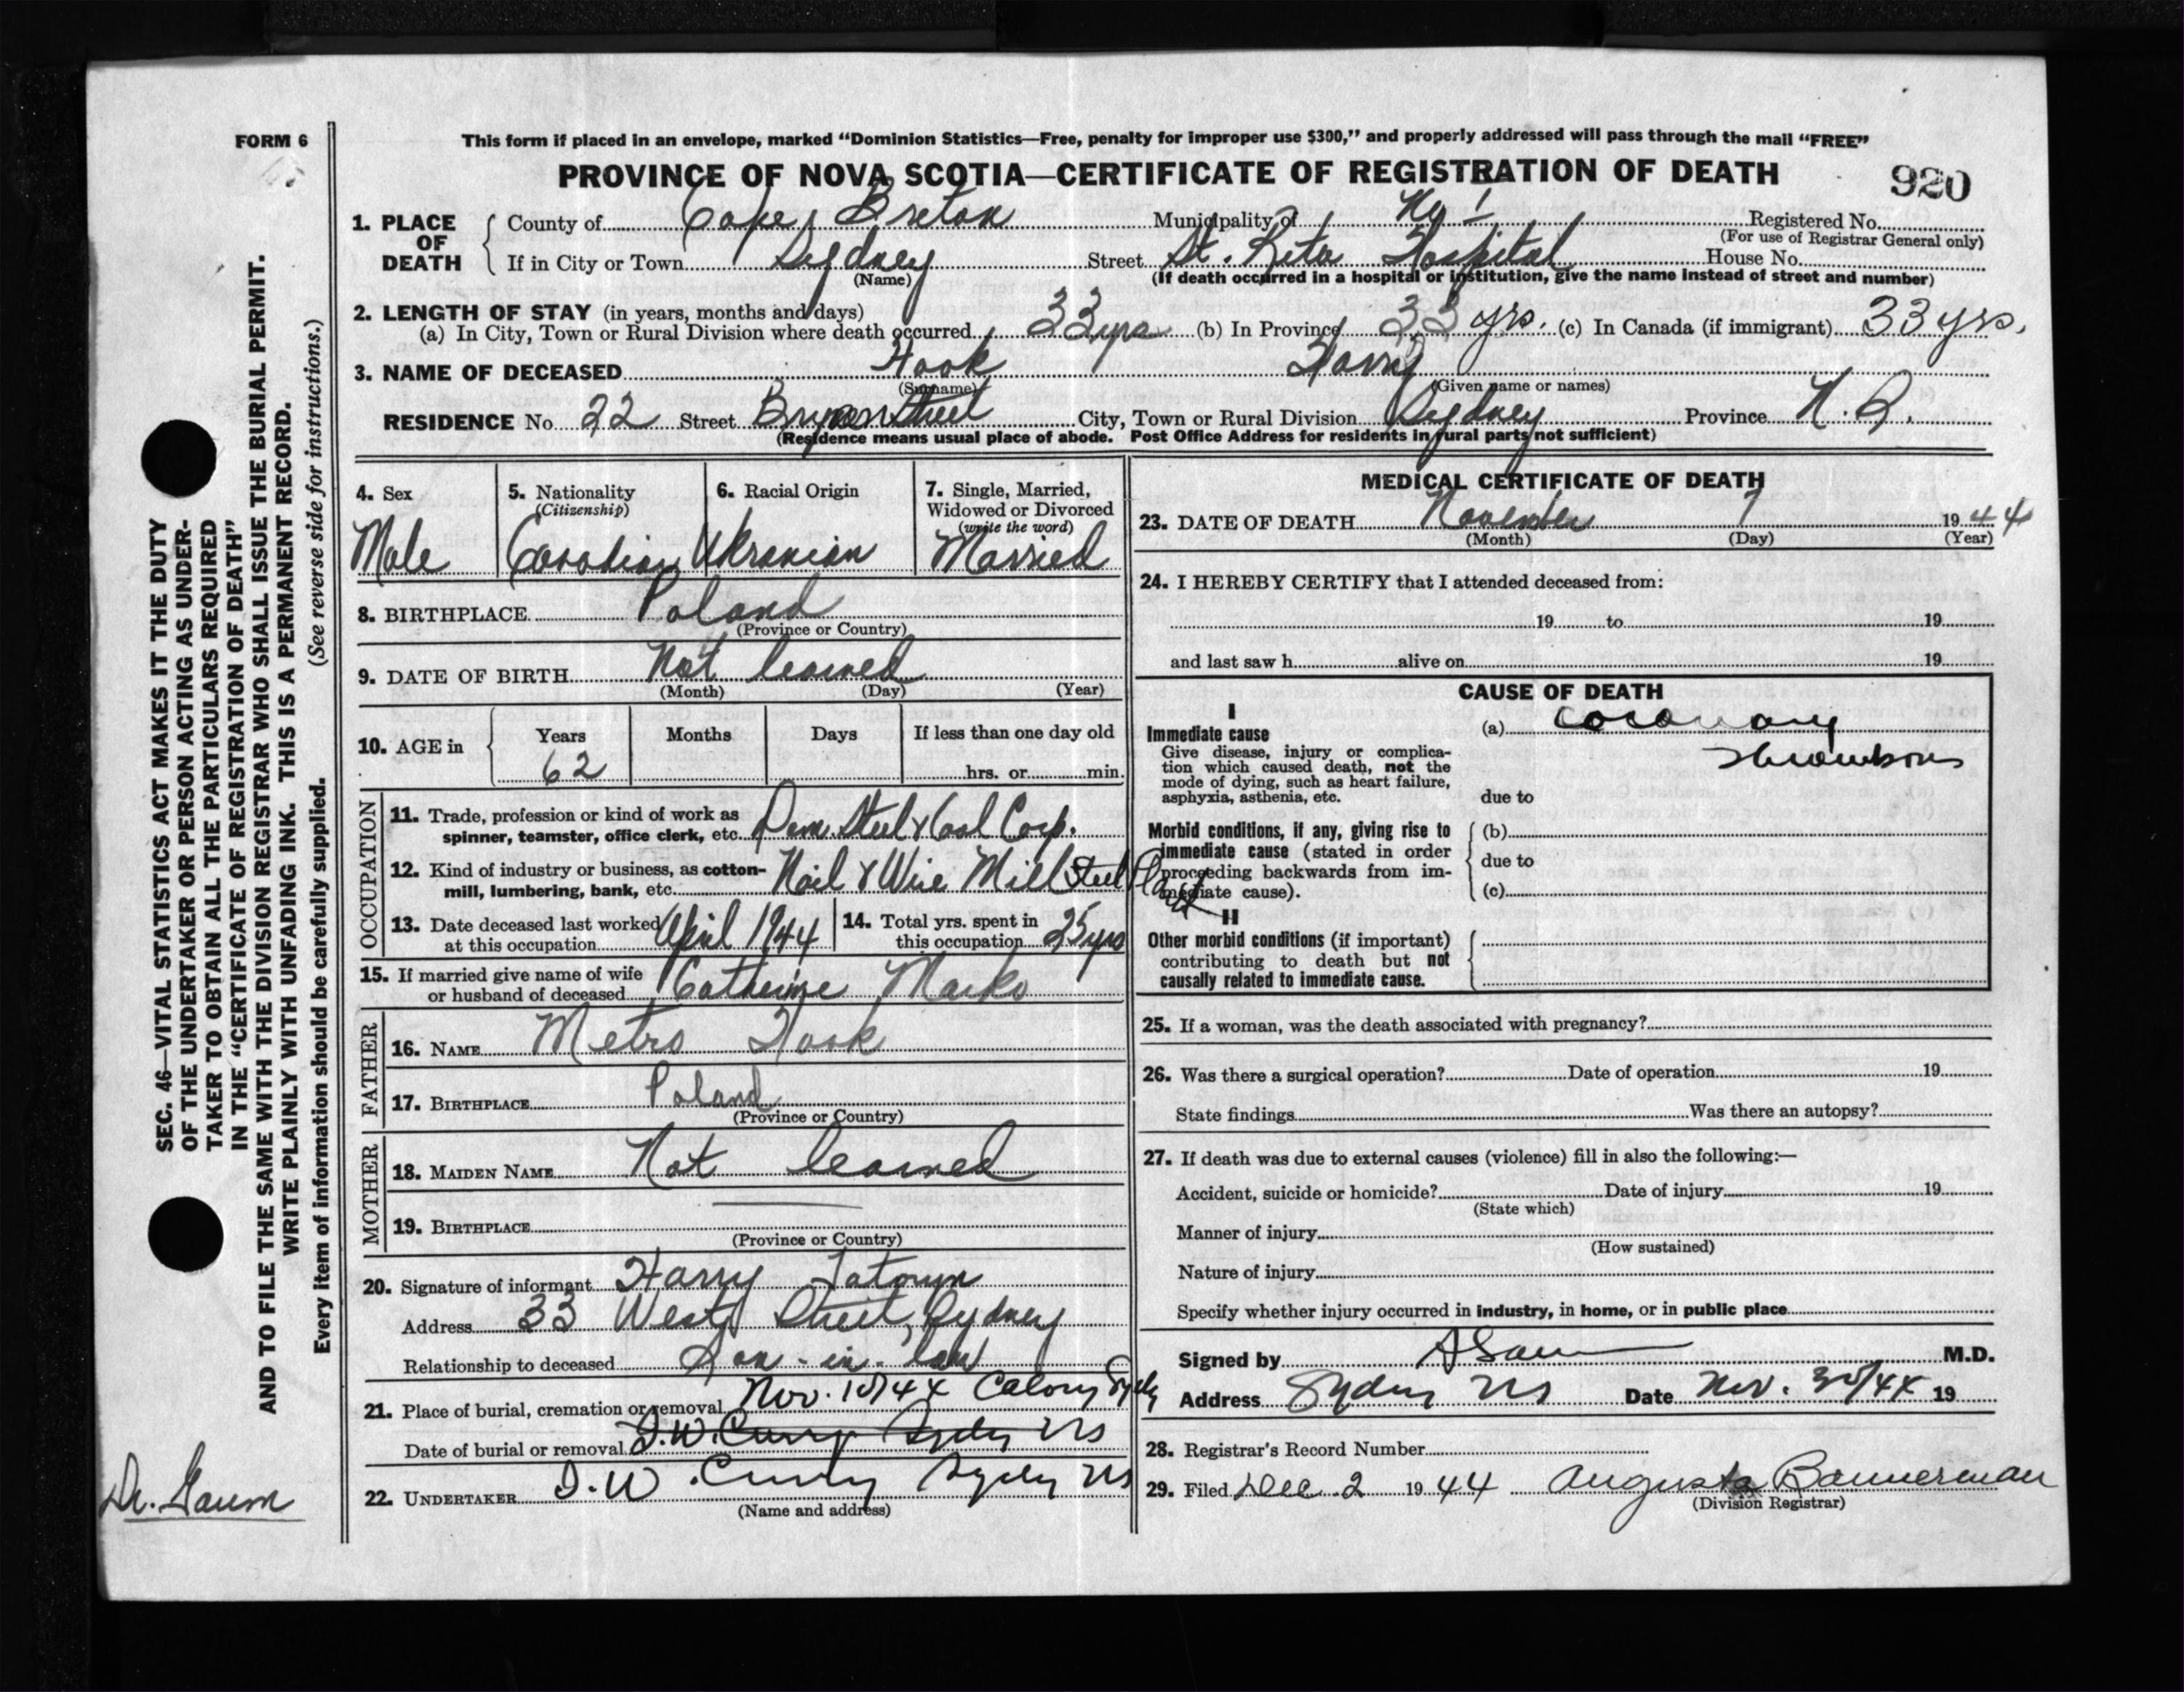 FORM 6
This form if placed in an envelope, marked “Dominion Statistics—Free, penalty for improper use $300,” and properly addressed will pass through the mail “FREE”
PROVINCE OF NOVA SCOTIA—CERTIFICATE OF REGISTRATION OF DEATH 920
1. PLACE OF DEATH
County of Cape Breton Municipality of Registered No.
(For use of Registrar General only)
If in City or Town Sydney Street St. Rita Hospital House No.
(Name) (If death occurred in a hospital or institution, give the name instead of street and number)
2. LENGTH OF STAY (in years, months and days)
(a) In City, Town or Rural Division where death occurred 33 yrs (b) In Province 33 yrs. (c) In Canada (if immigrant) 33 yrs.
3. NAME OF DECEASED Hook Harry
(Surname) (Given name or names)
RESIDENCE No. 22 Street Street City, Town or Rural Division Sydney Province N. S.
(Residence means usual place of abode. Post Office Address for residents in rural parts not sufficient)
4. Sex 5. Nationality (Citizenship) 6. Racial Origin 7. Single, Married, Widowed or Divorced (write the word)
Male Canadian Ukranian Married
8. BIRTHPLACE Poland
(Province or Country)
9. DATE OF BIRTH Not learned
(Month) (Day) (Year)
10. AGE in Years Months Days If less than one day old
62 hrs. or min.
OCCUPATION
11. Trade, profession or kind of work as
spinner, teamster, office clerk, etc. Dom. Steel & Coal Corp.
12. Kind of industry or business, as cotton-
mill, lumbering, bank, etc. Nail & Wire Mill Steel Plant
13. Date deceased last worked
at this occupation April 1944
14. Total yrs. spent in
this occupation 25 yrs
15. If married give name of wife
or husband of deceased Catherine Marko
FATHER
16. NAME Metro Hook
17. BIRTHPLACE Poland
(Province or Country)
MOTHER
18. MAIDEN NAME Not learned
19. BIRTHPLACE
(Province or Country)
20. Signature of informant Harry Tatoryn
Address 33 West Street, Sydney
Relationship to deceased Son-in-law
21. Place of burial, cremation or removal Nov. 10/44 Calvary Sydney
Date of burial or removal D.W. Curry Sydney NS
22. UNDERTAKER D.W. Curry Sydney NS
(Name and address)
MEDICAL CERTIFICATE OF DEATH
23. DATE OF DEATH November 7 1944
(Month) (Day) (Year)
24. I HEREBY CERTIFY that I attended deceased from:
19 to 19
and last saw h alive on 19
CAUSE OF DEATH
I
Immediate cause
Give disease, injury or complica-
tion which caused death, not the
mode of dying, such as heart failure,
asphyxia, asthenia, etc.
(a) Coronary
Thrombosis
due to
Morbid conditions, if any, giving rise to
immediate cause (stated in order
proceeding backwards from im-
mediate cause).
(b)
due to
(c)
II
Other morbid conditions (if important)
contributing to death but not
causally related to immediate cause.
25. If a woman, was the death associated with pregnancy?
26. Was there a surgical operation? Date of operation 19
State findings Was there an autopsy?
27. If death was due to external causes (violence) fill in also the following:—
Accident, suicide or homicide? Date of injury 19
(State which)
Manner of injury
(How sustained)
Nature of injury
Specify whether injury occurred in industry, in home, or in public place
Signed by A Gaum M.D.
Address Sydney NS Date Nov. 30/44 19
28. Registrar's Record Number
29. Filed Dec. 2 1944 Augusta Bannerman
(Division Registrar)
SEC. 46—VITAL STATISTICS ACT MAKES IT THE DUTY
OF THE UNDERTAKER OR PERSON ACTING AS UNDER-
TAKER TO OBTAIN ALL THE PARTICULARS REQUIRED
IN THE “CERTIFICATE OF REGISTRATION OF DEATH”
AND TO FILE THE SAME WITH THE DIVISION REGISTRAR WHO SHALL ISSUE THE BURIAL PERMIT.
WRITE PLAINLY WITH UNFADING INK. THIS IS A PERMANENT RECORD.
Every item of information should be carefully supplied. (See reverse side for instructions.)
Dr. Gaum